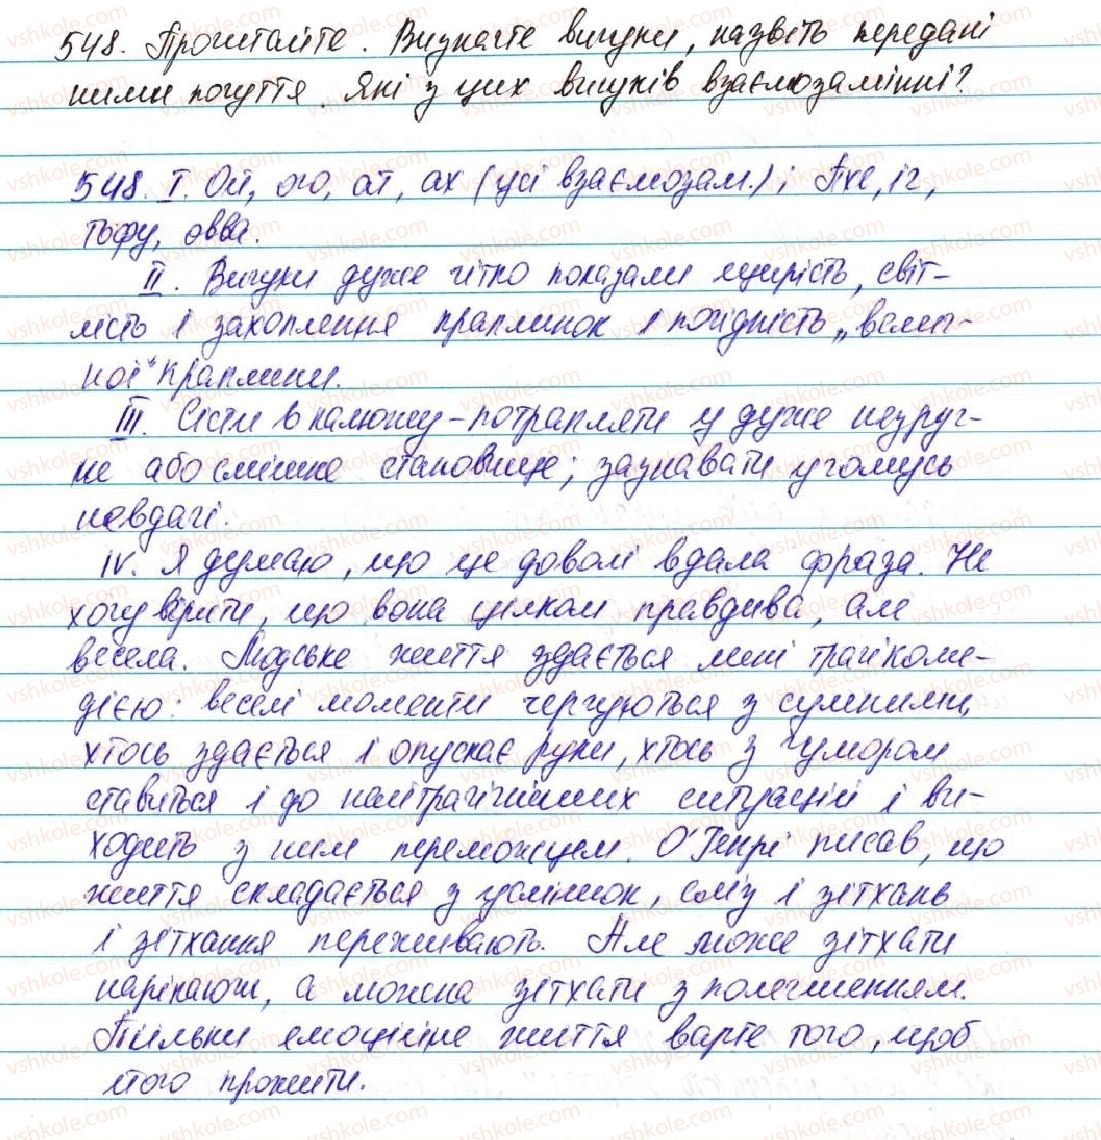 548. Прочитайте. Визначте вигуки, назвіть передані
ними почуття. Які з цих вигуків взаємозамінні?
548. I. Ой, ого, ат, ах (усі взаємозам.); Пхе, іч,
тьфу, овва.
II. Вигуки дуже чітко показали щирість, світ-
лість і захоплення краплинок і погідність „велич-
ної" краплини.
III. Сісти в калюжу – потрапляти у дуже незруч-
не або смішне становище; зазнавати у чомусь
невдачі.
IV. Я думаю, що це доволі вдала фраза. Не
хочу вірити, що вона цілком правдива, але
весела. Людське життя здається мені трагікоме-
дією: веселі моменти чергуються з сумними,
хтось здається і опускає руки, хтось з гумором
ставиться і до найтрагічніших ситуацій і ви-
ходить з них переможцем. О'Генрі писав, що
життя складається з усмішок, сліз і зітхань
і зітхання переживають. Але може зітхати
нарікаючи, а можна зітхати з полегшенням.
Тільки емоційне життя варте того, щоб
його прожити.